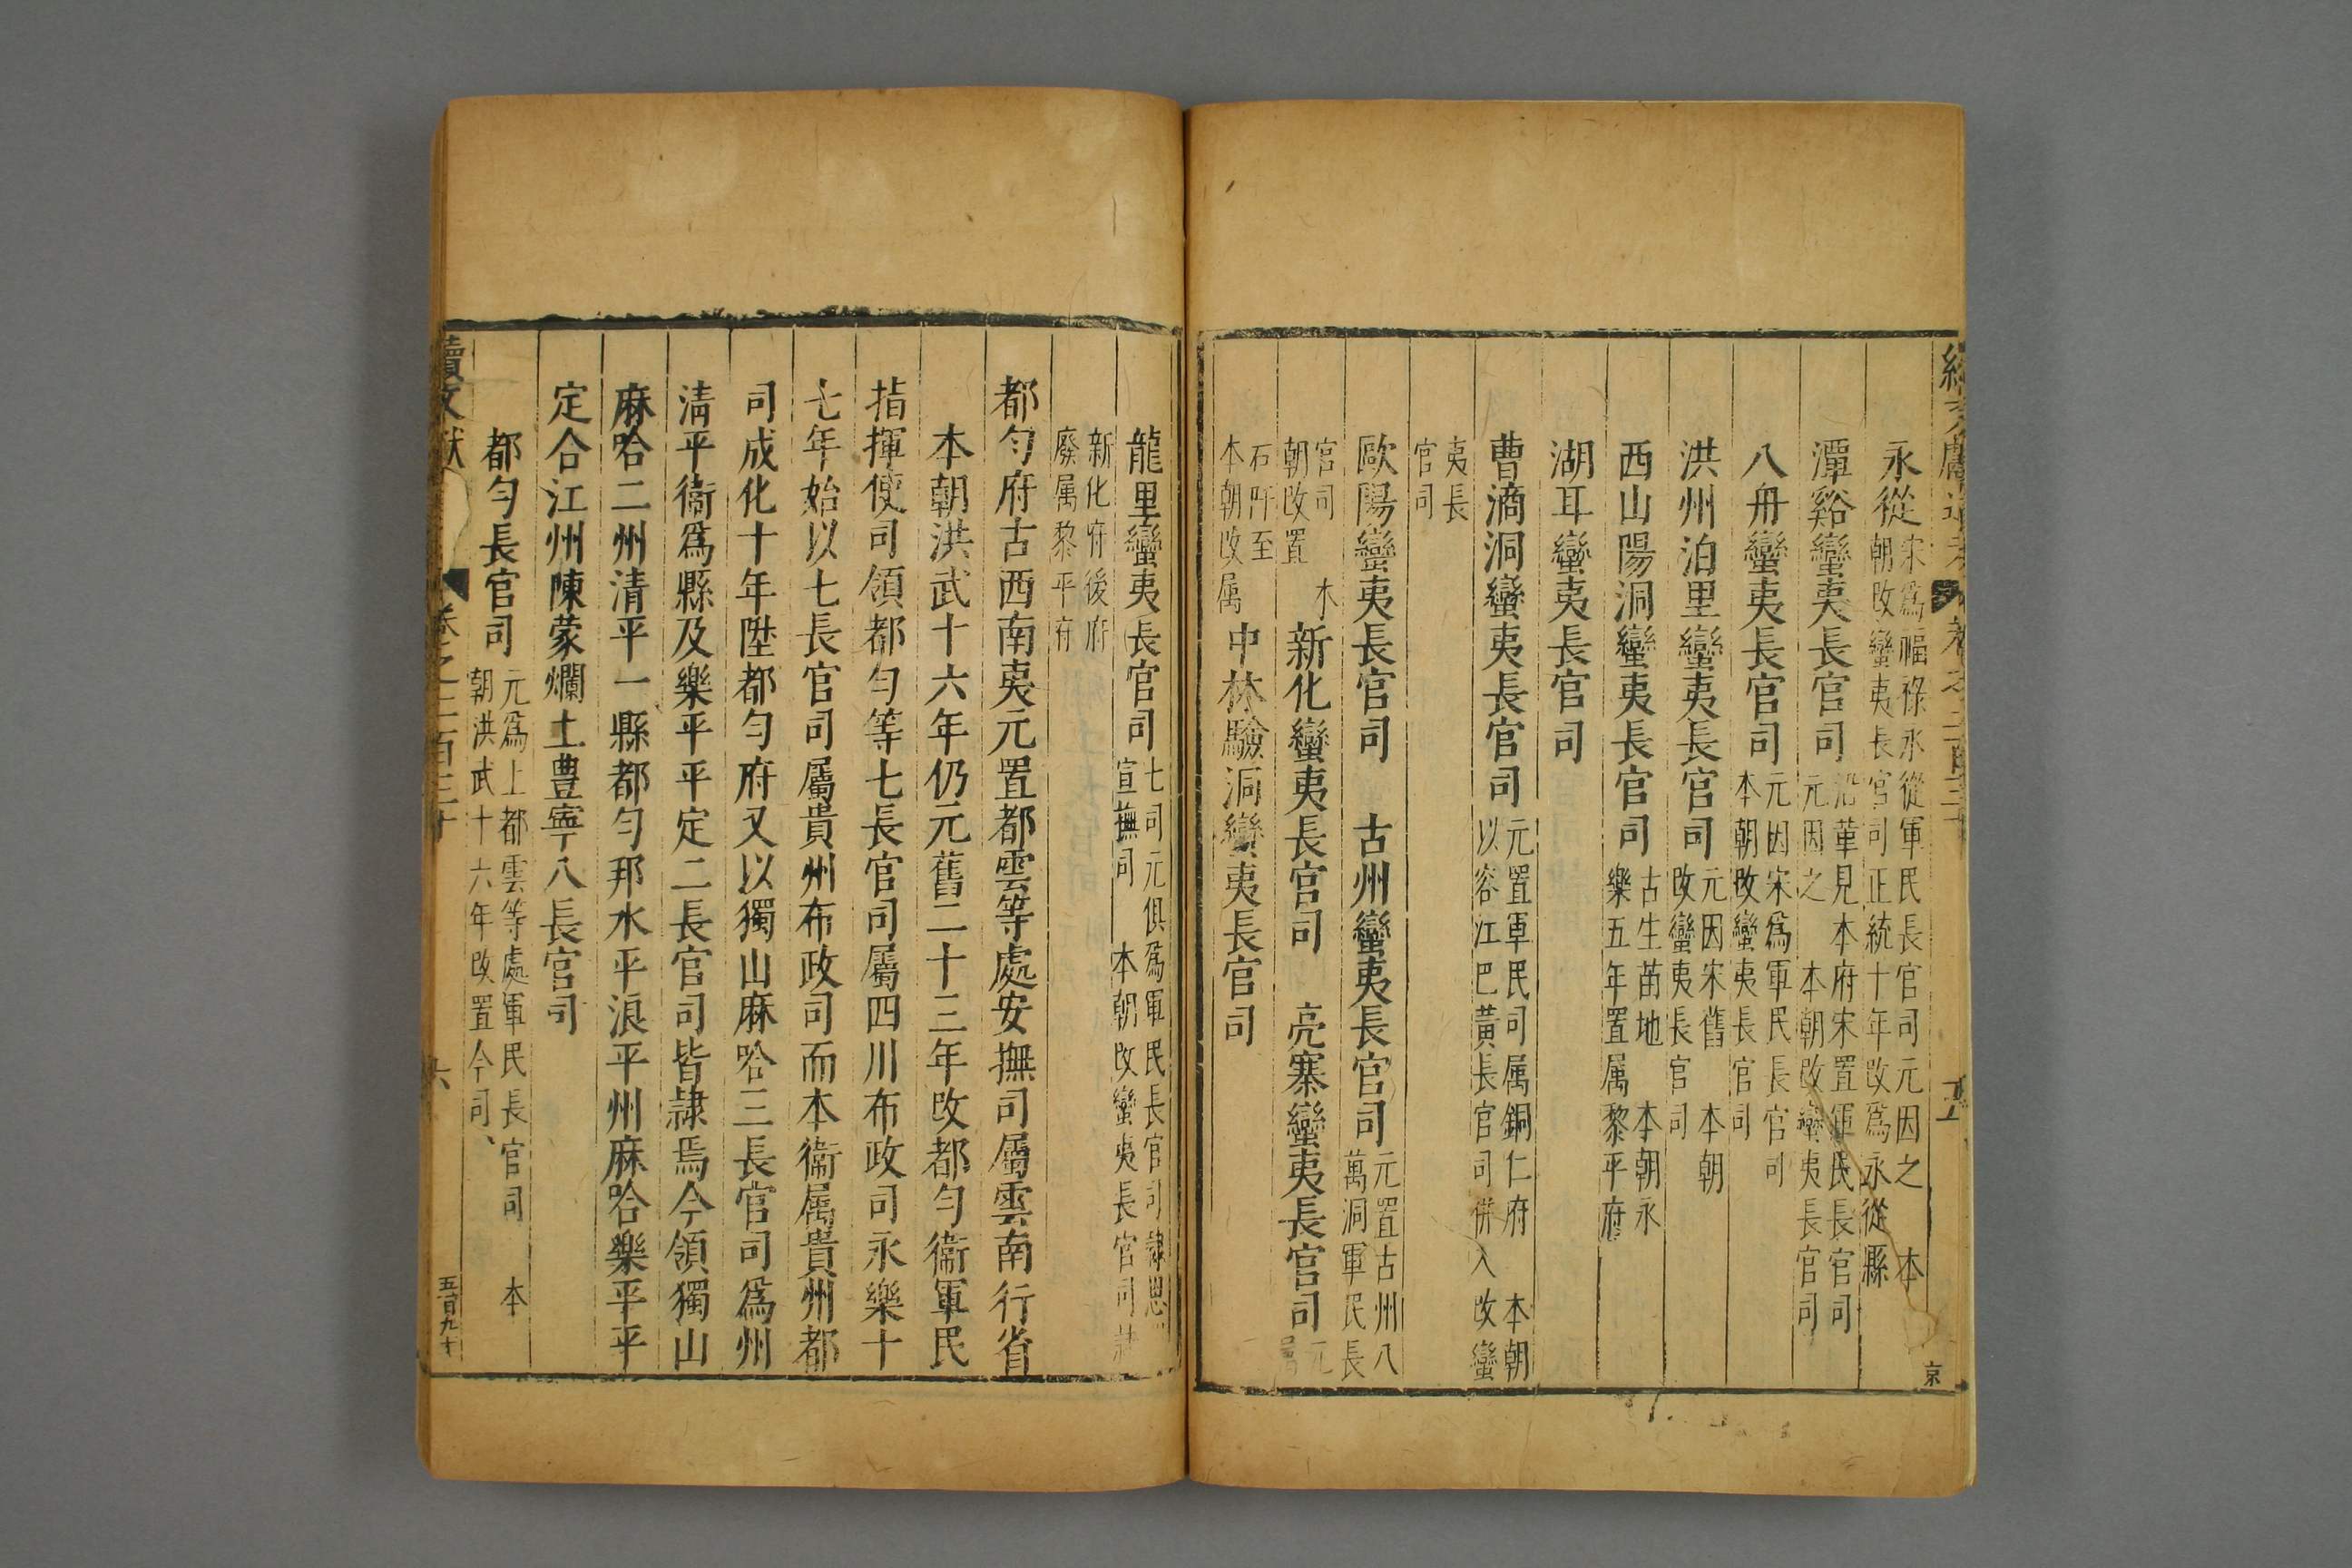 永從宋爲福祿永從軍民長官司元因之 本
朝改蠻夷長官司正統十年改爲永從縣
潭谿蠻夷長官司沿革見本府宋置軍民長官司
元因之 本朝改蠻夷長官司
八舟蠻夷長官司元因宋爲軍民長官司
本朝改蠻夷長官司
洪州泊里蠻夷長官司元因宋舊 本朝
改蠻夷長官司
西山陽洞蠻夷長官司古生苗地 本朝永
樂五年置属黎平府
湖耳蠻夷長官司
曹滴洞蠻夷長官司元置軍民司属銅仁府 本朝
以容江巴黃長官司併入改蠻
夷長
官司
歐陽蠻夷長官司 古州蠻夷長官司元置古州八
萬洞軍民長
官司 本
朝改置
新化蠻夷長官司 亮寨蠻夷長官司元
石阡至
本朝改属
中林驗洞蠻夷長官司
京
龍里蠻夷長官司七司元俱爲軍民長官司隸思
宣撫司 本朝改蠻夷長官司隸
新化府後府
廢属黎平府
都勻府古西南夷元置都雲等處安撫司屬雲南行省
本朝洪武十六年仍元舊二十三年改都勻衞軍民
指揮使司領都勻等七長官司屬四川布政司永樂十
七年始以七長官司屬貴州布政司而本衞属貴州都
司成化十年陞都勻府又以獨山麻哈三長官司爲州
淸平衞爲縣及樂平平定二長官司皆隸焉今領獨山
麻哈二州清平一縣都勻邦水平浪平州麻哈樂平平
定合江州陳蒙爛土豊寧八長官司
都勻長官司元爲上都雲等處軍民長官司 本
朝洪武十六年改置今司、
續文献
卷之二百三十
六
五百九十